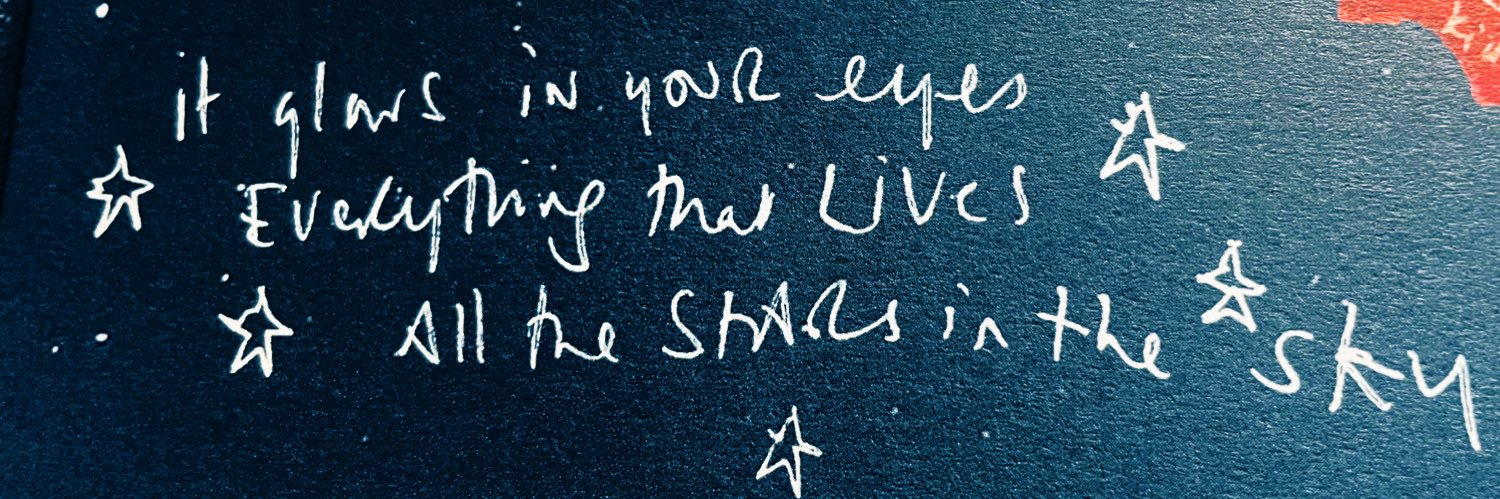 it glows in your eyes
Everything that LiVes
All the StARs in the sky